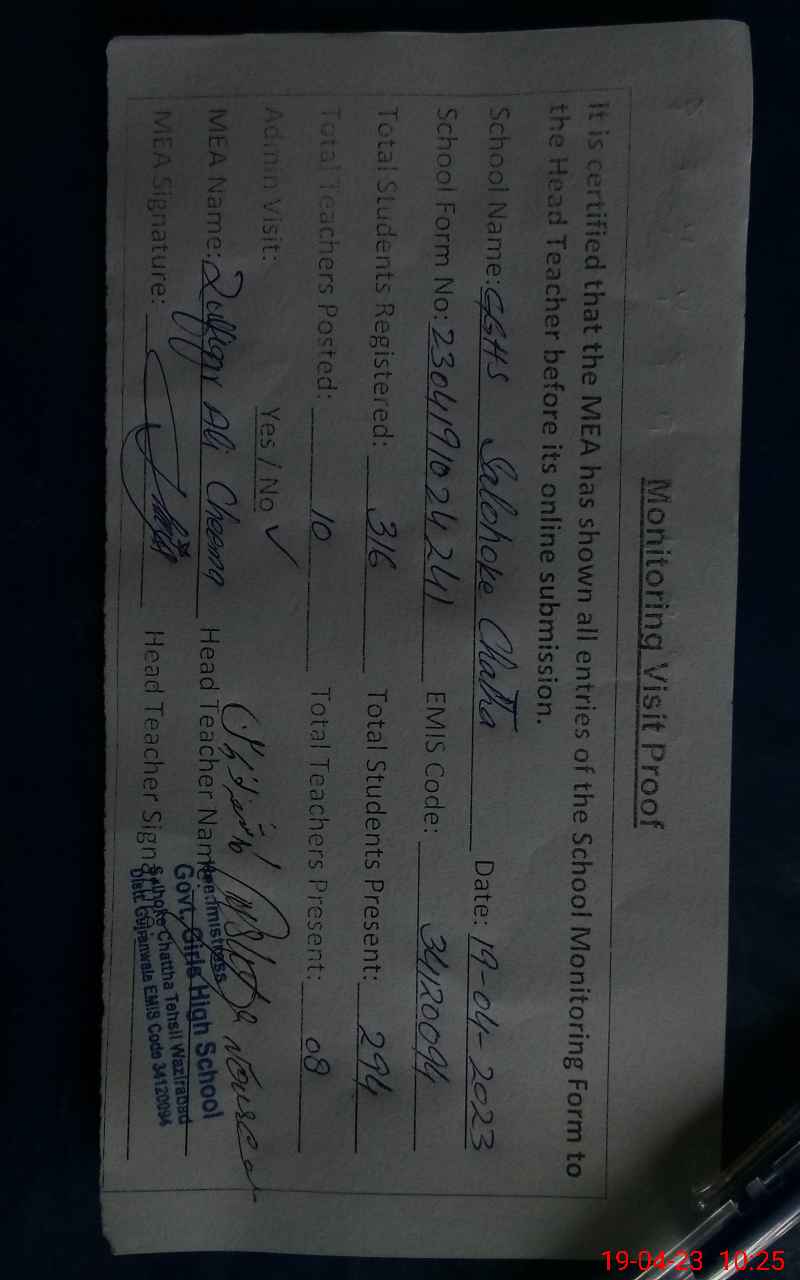 Monitoring Visit Proof
It is certified that the MEA has shown all entries of the School Monitoring Form to
the Head Teacher before its online submission.
School Name: GGHS Salohoke Chatha Date: 19-04-2023
School Form No: 2304191024241 EMIS Code: 34120094
Total Students Registered: 316 Total Students Present: 294
Total Teachers Posted: 10 Total Teachers Present: 08
Admin Visit: Yes / No ✓
MEA Name: Zulfiqar Ali Cheema Head Teacher Name:
MEA Signature: Head Teacher
Headmistress
Govt. Girls High School
Salhoke Chattha Tehsil Wazirabad
Distt Gujranwala EMIS Code 34120094
19-04-23 10:25